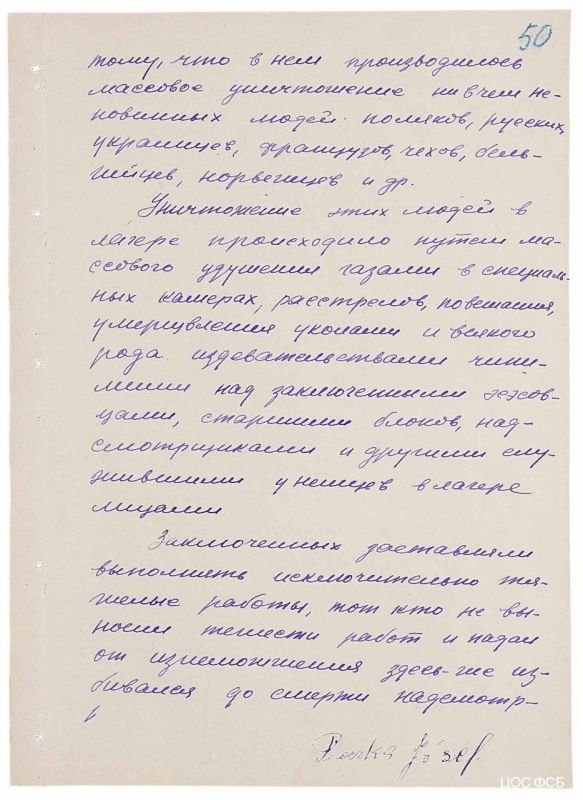 50
тому, что в нем производилось
массовое уничтожение ни в чем не-
повинных людей поляков, русских,
украинцев, французов, чехов, бель-
гийцев, норвежцев и др.
Уничтожение этих людей в
лагере происходило путем ма-
ссового удушения газами в специаль-
ных камерах, расстрелов, повешания,
умерщвления уколами и всякого
рода издевательствами чини-
мыми над заключенными эсэсов-
цами, старшими блоков, над-
смотрщиками и другими слу-
жившими у немцев в лагере
лицами.
Заключенных заставляли
выполнять исключительно тя-
желые работы, тот кто не вы-
носил тяжести работ и падал
от изнеможжения здесь-же из-
бивался до смерти надсмотр-
Józef.
ЦОС ФСБ